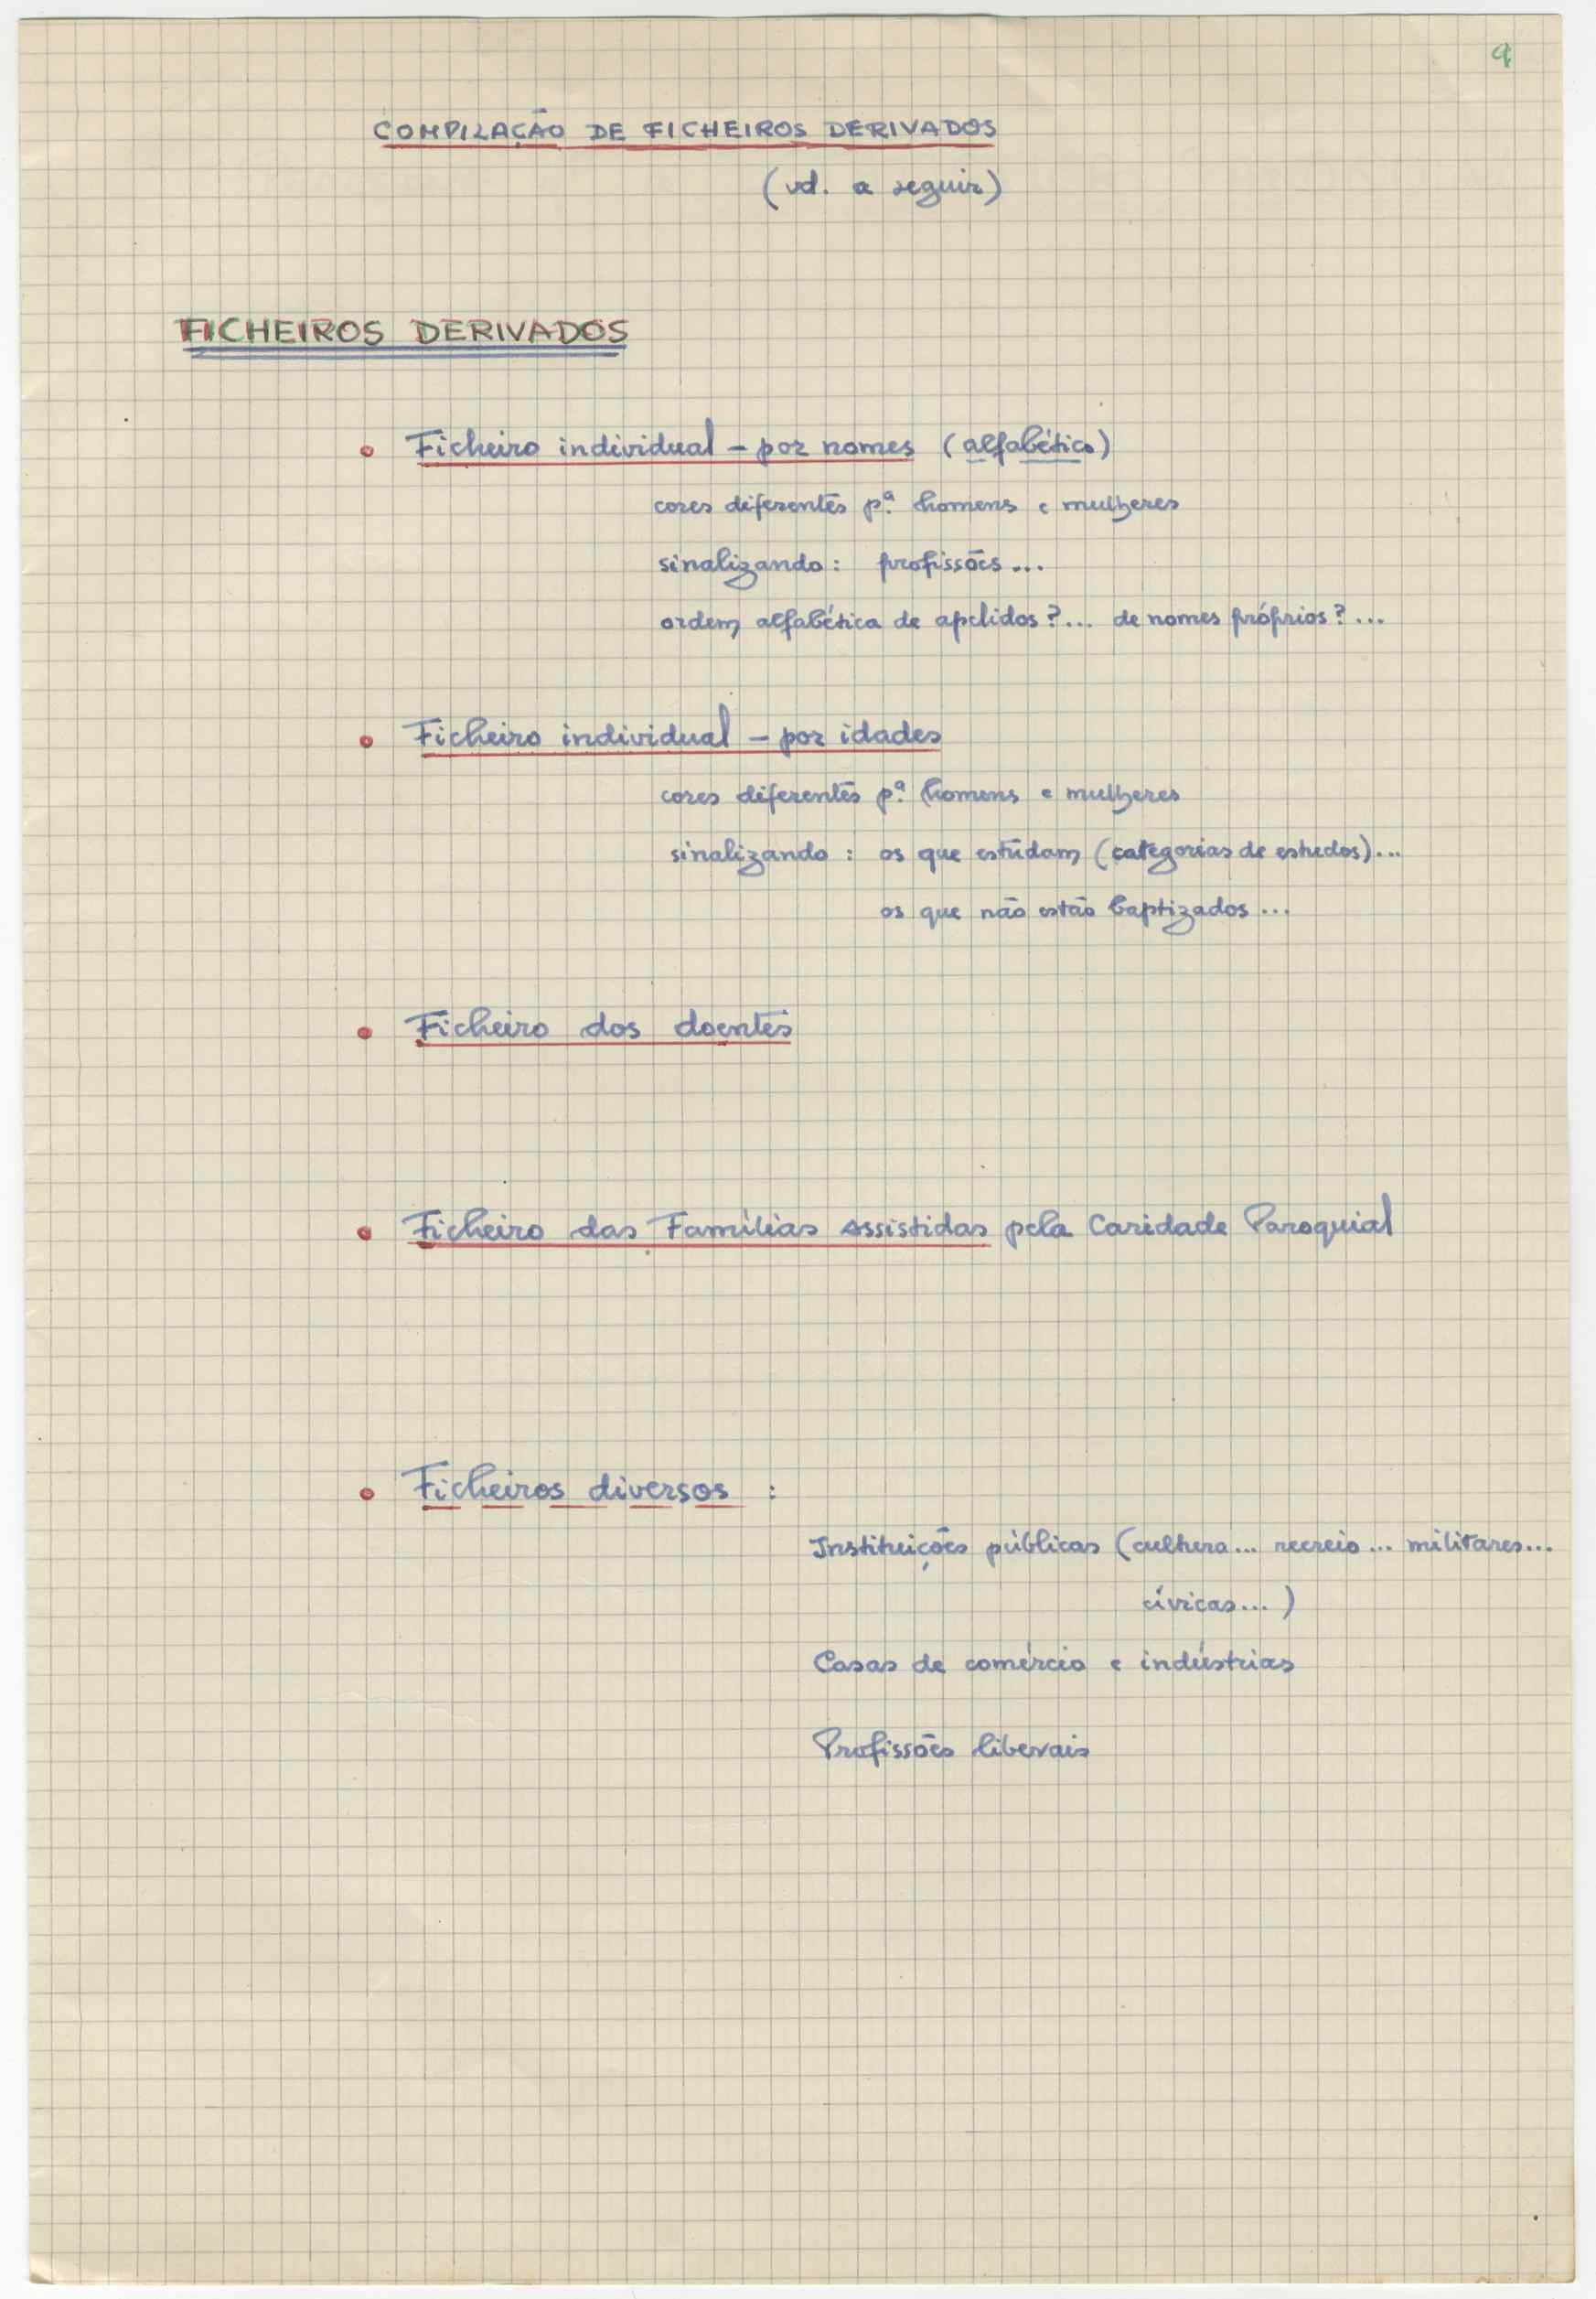 9
COMPILAÇÃO DE FICHEIROS DERIVADOS
(vd. a seguir)
FICHEIROS DERIVADOS
Ficheiro individual – por nomes (alfabético)
cores diferentes pª. homens e mulheres
sinalizando: profissões...
ordem alfabética de apelidos?... de nomes próprios?...
Ficheiro individual – por idades
cores diferentes pª. homens e mulheres
sinalizando: os que estudam (categorias de estudos)...
os que não estão baptizados...
Ficheiro dos doentes
Ficheiro das Famílias Assistidas pela Caridade Paroquial
Ficheiros diversos :
Instituições públicas (cultura... recreio... militares...
cívicas...)
Casas de comércio e indústrias
Profissões liberais